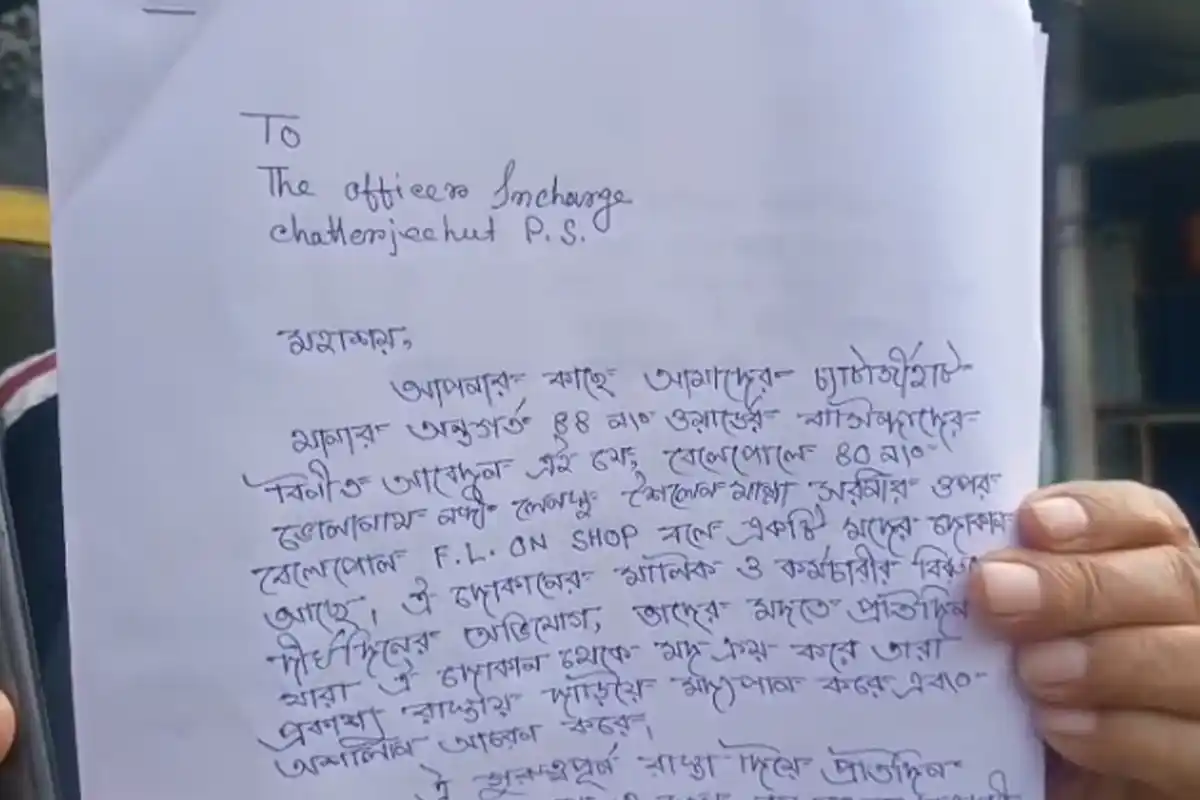 To
The officer Incharge
Chatterjeehat P.S.
মহাশয়,
আপনার কাছে আমাদের চ্যাটার্জীহাট
থানার অন্তর্গত 44 নং ওয়ার্ডের বাসিন্দাদের
বিনীত আবেদন এই যে, বেলেপোলে 80 নং
ভোলানাথ নন্দী লেনস্থ শৈলেন মান্না সরনীর ওপর
বেলেপোল F.L. ON SHOP বলে একটি মদের দোকান
আছে। ঐ দোকানের মালিক ও কর্মচারীর
দীর্ঘদিনের অভিযোগ, তাদের মদতে প্রতিদিন
যারা ঐ দোকান থেকে মদ ক্রয় করে তারা
প্রকাশ্য রাস্তায় দাঁড়িয়ে মদ্যপান করে এবং
অশালিন আচরন করে।
ঐ গুরুত্বপূর্ন রাস্তা দিয়ে প্রতিদিন